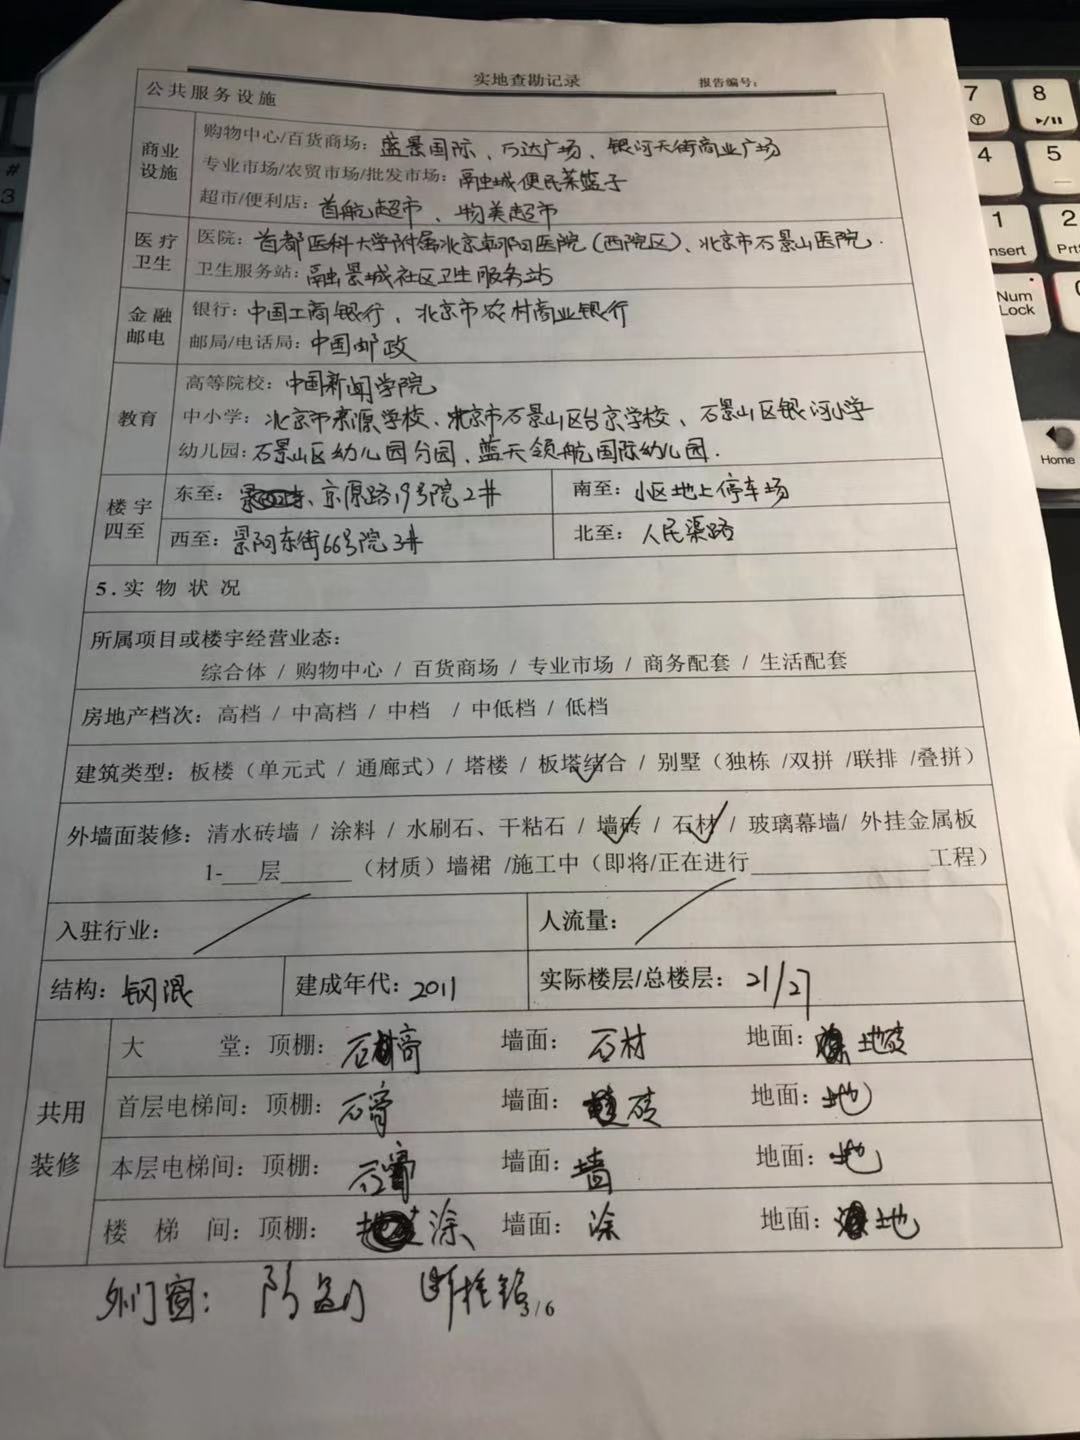 实地查勘记录 报告编号：
公共服务设施
商业设施
购物中心/百货商场：盛景国际、万达广场、银河天街商业广场
专业市场/农贸市场/批发市场：融城便民菜篮子
超市/便利店：首航超市、物美超市
医疗卫生
医院：首都医科大学附属北京朝阳医院（西院区）、北京市石景山医院.
卫生服务站：融景城社区卫生服务站
金融邮电
银行：中国工商银行、北京市农村商业银行
邮局/电话局：中国邮政
教育
高等院校：中国新闻学院
中小学：北京市京源学校、北京市石景山区台京学校、石景山区银河小学
幼儿园：石景山区幼儿园分园、蓝天领航国际幼儿园.
楼宇四至
东至：、京原路19号院2# 南至：小区地上停车场
西至：景阳东街66号院3# 北至：人民渠路
5.实物状况
所属项目或楼宇经营业态：
综合体 / 购物中心 / 百货商场 / 专业市场 / 商务配套 / 生活配套
房地产档次：高档 / 中高档 / 中档 / 中低档 / 低档
建筑类型：板楼（单元式 / 通廊式）/ 塔楼 / 板塔结合 / 别墅（独栋 /双拼 /联排 /叠拼）
外墙面装修：清水砖墙 / 涂料 / 水刷石、干粘石 / 墙砖 / 石材 / 玻璃幕墙/ 外挂金属板
1-___层______（材质）墙裙 /施工中（即将/正在进行_______________工程）
入驻行业： 人流量：
结构：钢混 建成年代：2011 实际楼层/总楼层：21/27
共用装修
大堂：顶棚：石膏 墙面：石材 地面：地砖
首层电梯间：顶棚：石膏 墙面：砖 地面：地
本层电梯间：顶棚：石膏 墙面：墙 地面：地
楼梯间：顶棚：涂 墙面：涂 地面：地
外门窗：防盗门 断桥铝
3/6
7 8 4 5 1 2
Insert
Num Lock
Home